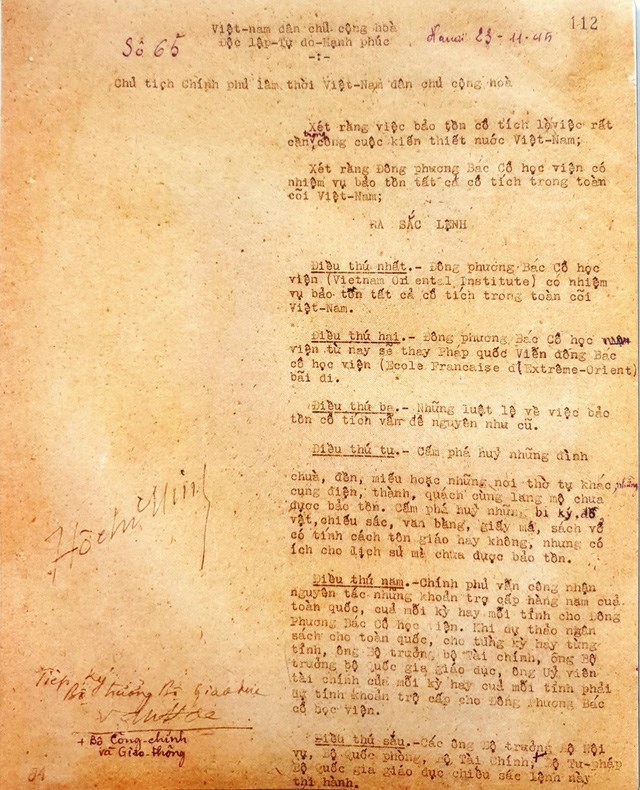 112
Việt-nam dân chủ cộng hoà
Số 65
Hanoi 23-11-45
Độc lập-Tự do-Hạnh phúc
-:-
Chủ tịch Chính phủ lâm thời Việt-Nam dân chủ cộng hoà
Xét rằng việc bảo tồn cổ tích là việc rất
cần trong công cuộc kiến thiết nước Việt-Nam;
Xét rằng Đông phương Bác Cổ học viện có
nhiệm vụ bảo tồn tất cả cổ tích trong toàn
cõi Việt-Nam;
RA SẮC LỆNH
Điều thứ nhất.- Đông phương Bác Cổ học
viện (Vietnam Oriental Institute) có nhiệm
vụ bảo tồn tất cả cổ tích trong toàn cõi
Việt-Nam.
Điều thứ hai.- Đông phương Bác Cổ học
viện từ nay sẽ thay Pháp quốc Viễn đông Bác
cổ học viện (Ecole Francaise d'Extrême-Orient)
bãi đi.
Điều thứ ba.- Những luật lệ về việc bảo
tồn cổ tích vẫn để nguyên như cũ.
Điều thứ tư.- Cấm phá huỷ những đình
chuà, đền, miếu hoặc những nơi thờ tự khác, những
cung điện, thành, quách cùng lăng mộ chưa
được bảo tồn. Cấm phá huỷ những bi ký, đồ
vật, chiếu sắc, văn bằng, giấy má, sách vở
có tính cách tôn giáo hay không, nhưng có
ích cho lịch sử mà chưa được bảo tồn.
Điều thứ năm.-Chính phủ vẫn công nhận
nguyên tắc những khoản trợ cấp hàng năm cuả
toàn quốc, cuả mỗi kỳ hay mỗi tỉnh cho Đông
Phương Bác Cổ học viện. Khi dự thảo ngân
sách cho toàn quốc, cho từng kỳ hay từng
tỉnh, ông Bộ trưởng bộ Tài chính, ông Bộ
trưởng bộ Quốc gia giáo dục, ông Uỷ viên
tài chính cuả mỗi kỳ hay cuả mỗi tỉnh phải
dự tính khoản trợ cấp cho Đông Phương Bác
cổ học viện.
Điều thứ sáu.-Các ông Bộ trưởng Bộ Nội
vụ, Bộ Quốc phòng, Bộ Tài Chính, Bộ Tư-pháp
Bộ Quốc gia giáo dục chiểu sắc lệnh này
thi hành.
Hồ Chí Minh
Tiếp ký
Bộ trưởng Bộ Giáo dục
+ Bộ Công-chính
và Giao-thông